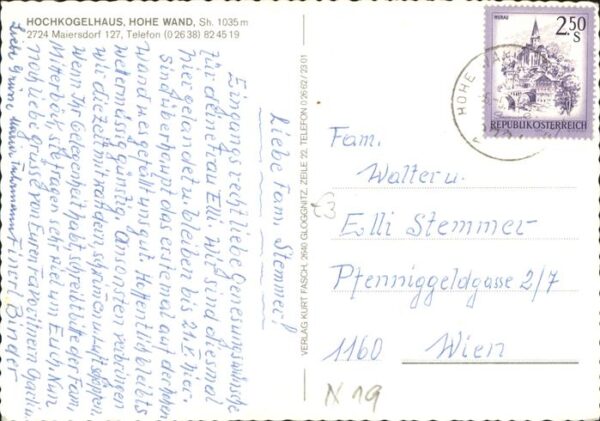 HOCHKOGELHAUS, HOHE WAND, Sh. 1035 m
2724 Maiersdorf 127, Telefon (0 26 38) 82 45 19
Liebe Fam. Stemmer!
Eingangs recht liebe Genesungswünsche
für deine Frau Elli. Wir sind diesmal
hier gelandet u. bleiben bis 21.V. hier.
Sind überhaupt das erstemal auf der hohen
Wand u. es gefällt uns gut. Hoffentlich bleibts
wettermässig günstig. Ansonsten verbringen
wir die Zeit mit wandern, schwimmen u. Luft schnappen.
Wenn Ihr Gelegenheit habt, schreibt bitte der Fam.
Mitterböck, sie fragen echt viel um Euch. Nun
noch liebe Grüsse von Euren
Binder
Liebe Grüsse
VERLAG KURT FASCH, 2640 GLOGGNITZ, ZEILE 22, TELEFON 0 26 62 / 23 01
MURAU
2.50
S
REPUBLIK ÖSTERREICH
HOHE WAND
Fam.
Walter u.
Elli Stemmer
Pfenniggeldgasse 2/7
1160 Wien
N 19